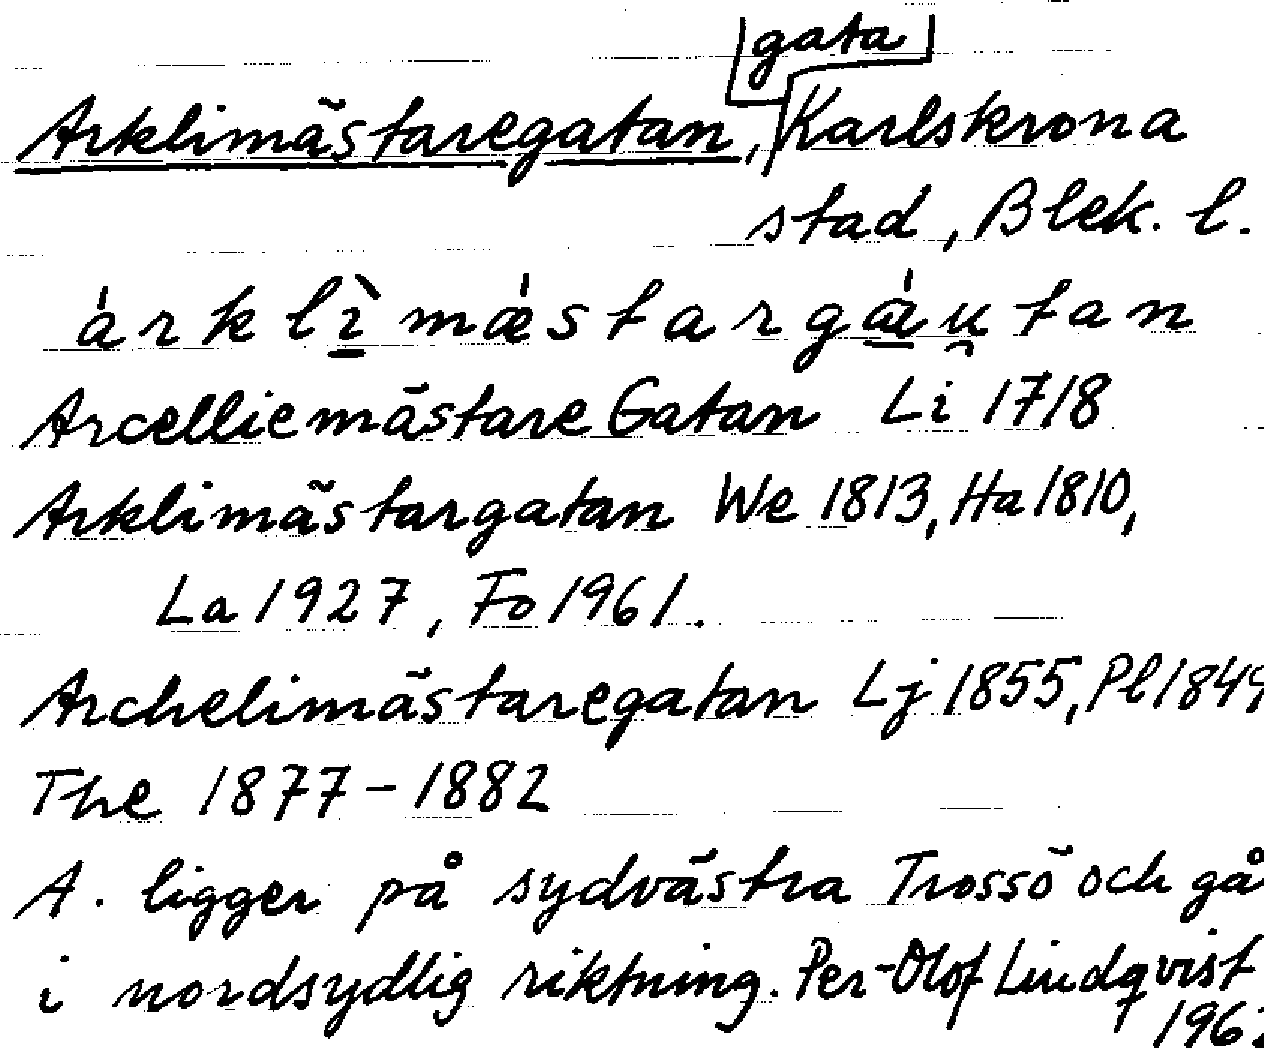 gata
Arklimästaregatan, Karlskrona
stad, Blek. l.
árklìmǽstargáu̯tan
Arcelliemästare Gatan Li 1718
Arklimästargatan We 1813, Ha 1810,
La 1927, Fo 1961.
Archelimästaregatan Lj 1855, Pl 1849
The 1877-1882
A. ligger på sydvästra Trossö och gå
i nordsydlig riktning. Per-Olof Lindqvist